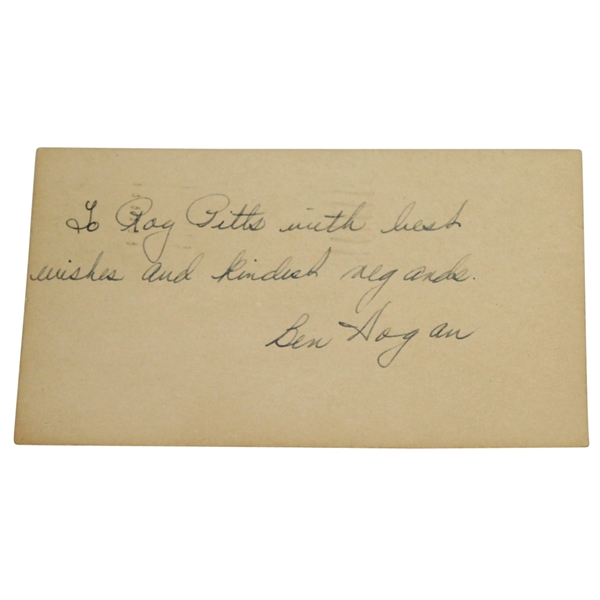 To Roy Pitts with best
wishes and kindest regards.
Ben Hogan